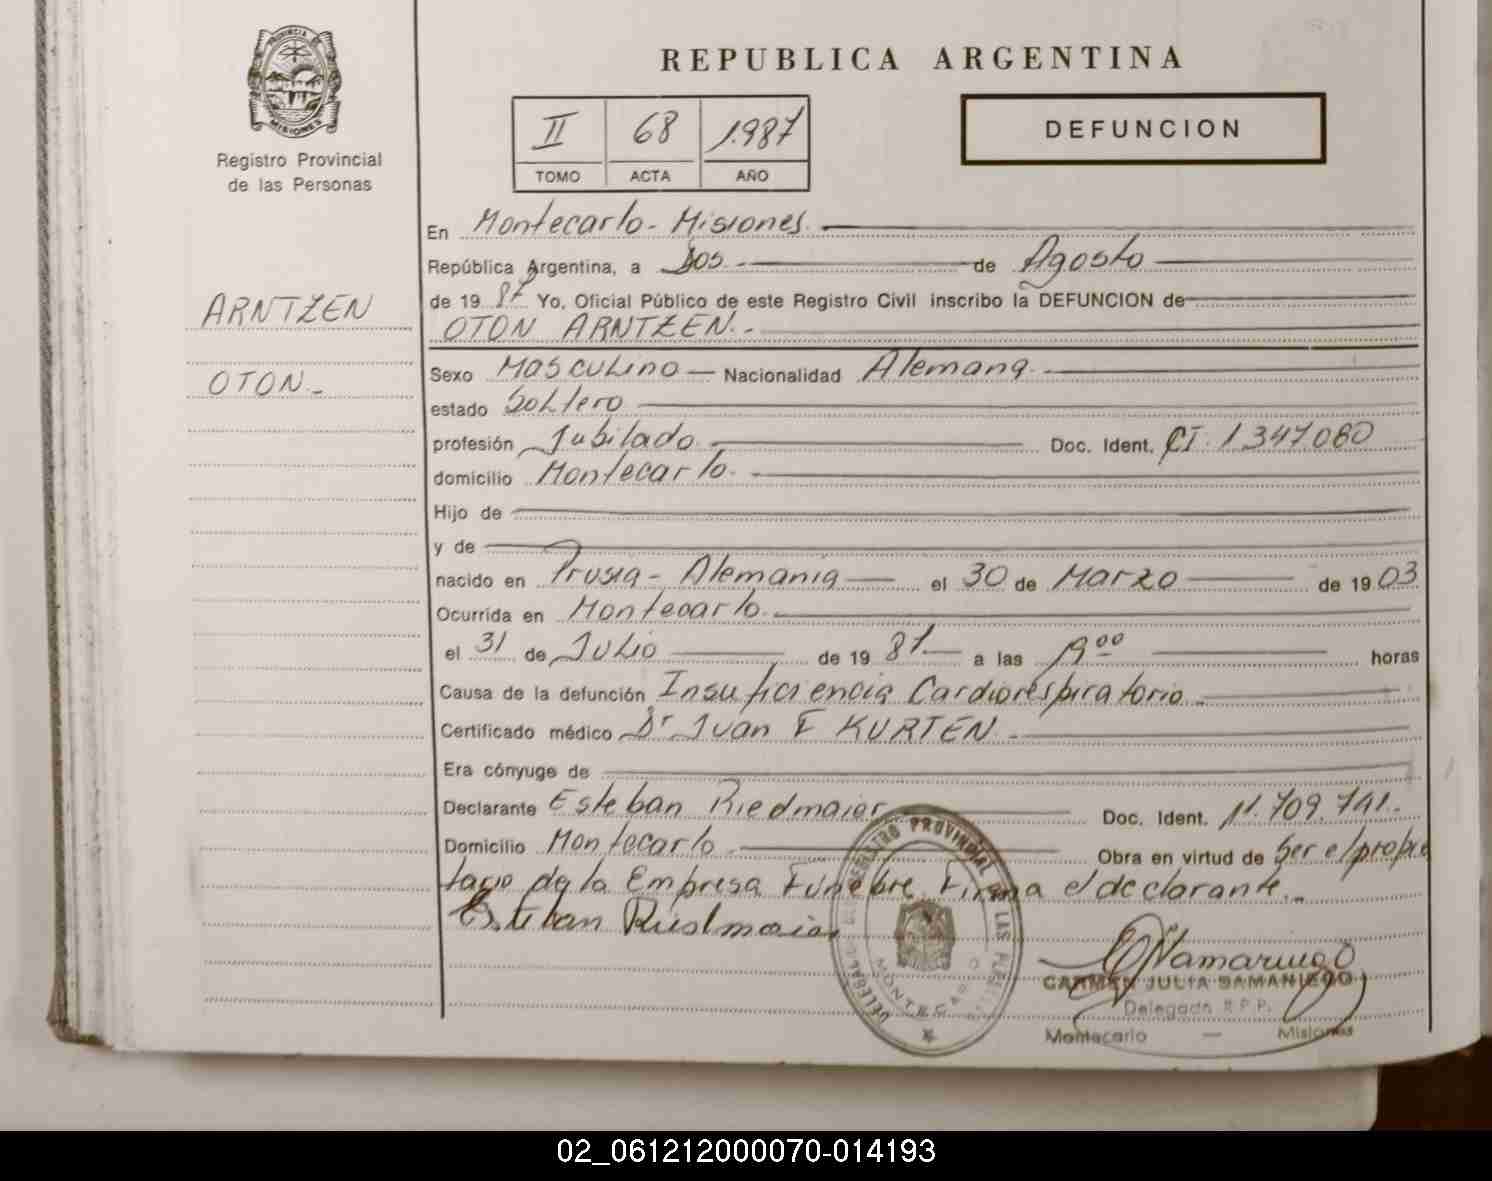 PROVINCIA DE
MISIONES
Registro Provincial
de las Personas
REPUBLICA ARGENTINA
II 68 1.987
TOMO ACTA AÑO
DEFUNCION
ARNTZEN
OTON.-
En Montecarlo - Misiones.
República Argentina, a Dos - de Agosto
de 19 87 Yo, Oficial Público de este Registro Civil inscribo la DEFUNCION de
OTON ARNTZEN.-
Sexo Masculino - Nacionalidad Alemana.
estado Soltero
profesión Jubilado. Doc. Ident. CI. 1.347.080
domicilio Montecarlo.
Hijo de
y de
nacido en Prusia - Alemania el 30 de Marzo de 19 03
Ocurrida en Montecarlo.
el 31 de Julio de 19 87 a las 19⁰⁰ horas
Causa de la defunción Insuficiencia Cardiorespiratorio.-
Certificado médico Dr Juan F KURTEN.-
Era cónyuge de
Declarante Esteban Riedmaier Doc. Ident. 11.709.741.
Domicilio Montecarlo Obra en virtud de Ser el propie
tario de la Empresa Fúnebre. Firma el declarante.-
Esteban Riedmaier
REGISTRO PROVINCIAL DE LAS
MONTECARLO
CARMEN JULIA SAMANIEGO
Delegada R.P.P.
Montecarlo — Misiones
02_061212000070-014193